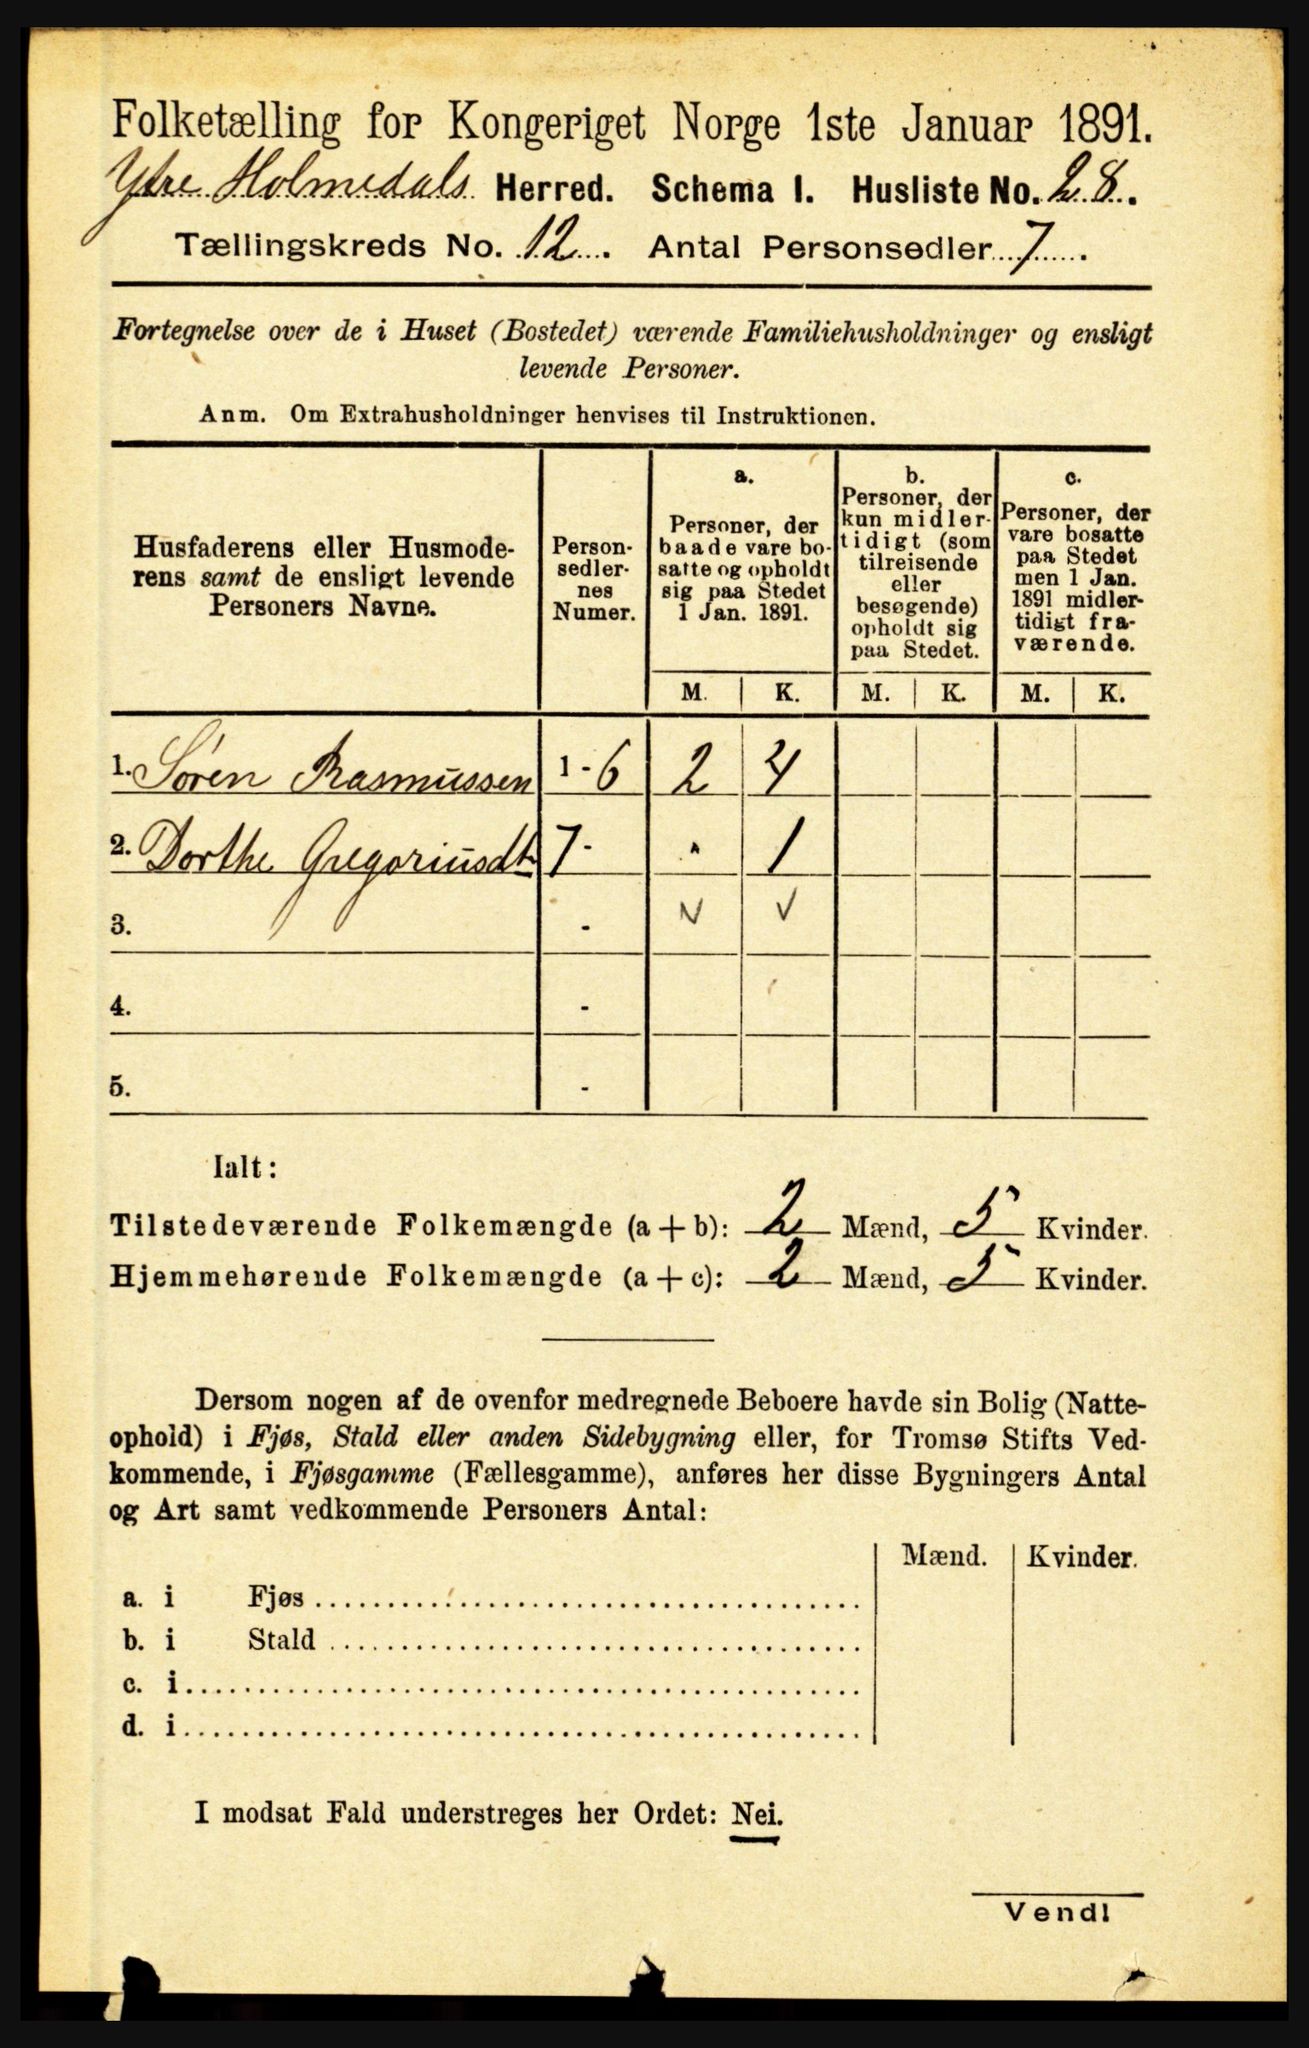 Folketælling for Kongeriget Norge 1ste Januar 1891.
Ytre Holmedals Herred. Schema I. Husliste No. 28.
Tællingskreds No. 12. Antal Personsedler 7.
Fortegnelse over de i Huset (Bostedet) værende Familiehusholdninger og ensligt
levende Personer.
Anm. Om Extrahusholdninger henvises til Instruktionen.
Husfaderens eller Husmode-
rens samt de ensligt levende
Personers Navne.
Person-
sedler-
nes
Numer.
a.
Personer, der
baade vare bo-
satte og opholdt
sig paa Stedet
1 Jan. 1891.
b.
Personer, der
kun midler-
tidigt (som
tilreisende
eller
besøgende)
opholdt sig
paa Stedet.
c.
Personer, der
vare bosatte
paa Stedet
men 1 Jan.
1891 midler-
tidigt fra-
værende.
M. K. M. K. M. K.
1. Søren Rasmussen 1 - 6 2 4
2. Dorthe Gregoriusdt 7 - " 1
3. -
4. -
5. -
Ialt:
Tilstedeværende Folkemængde (a + b): 2 Mænd, 5 Kvinder.
Hjemmehørende Folkemængde (a + c): 2 Mænd, 5 Kvinder.
Dersom nogen af de ovenfor medregnede Beboere havde sin Bolig (Natte-
ophold) i Fjøs, Stald eller anden Sidebygning eller, for Tromsø Stifts Ved-
kommende, i Fjøsgamme (Fællesgamme), anføres her disse Bygningers Antal
og Art samt vedkommende Personers Antal:
Mænd. Kvinder.
a. i Fjøs
b. i Stald
c. i
d. i
I modsat Fald understreges her Ordet: Nei.
Vend!